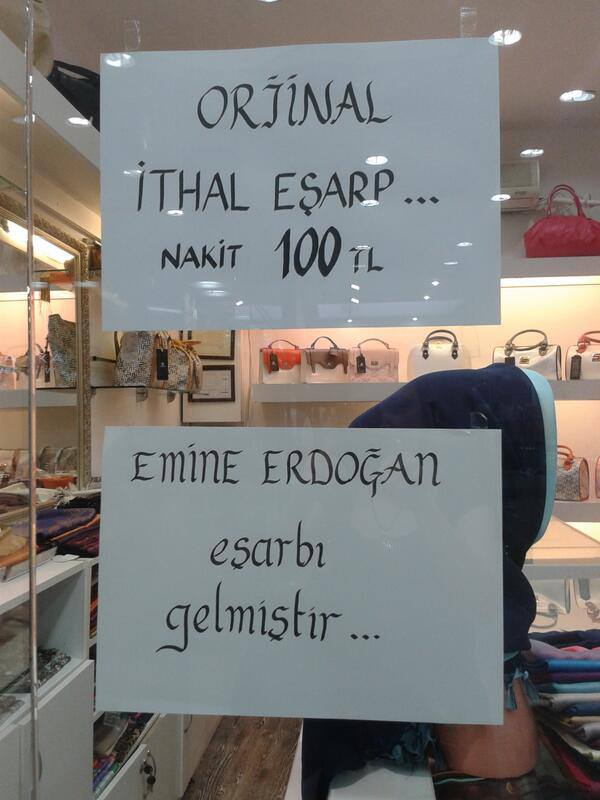 ORJİNAL
İTHAL EŞARP...
NAKİT 100 TL
EMİNE ERDOĞAN
eşarbı
gelmiştir...